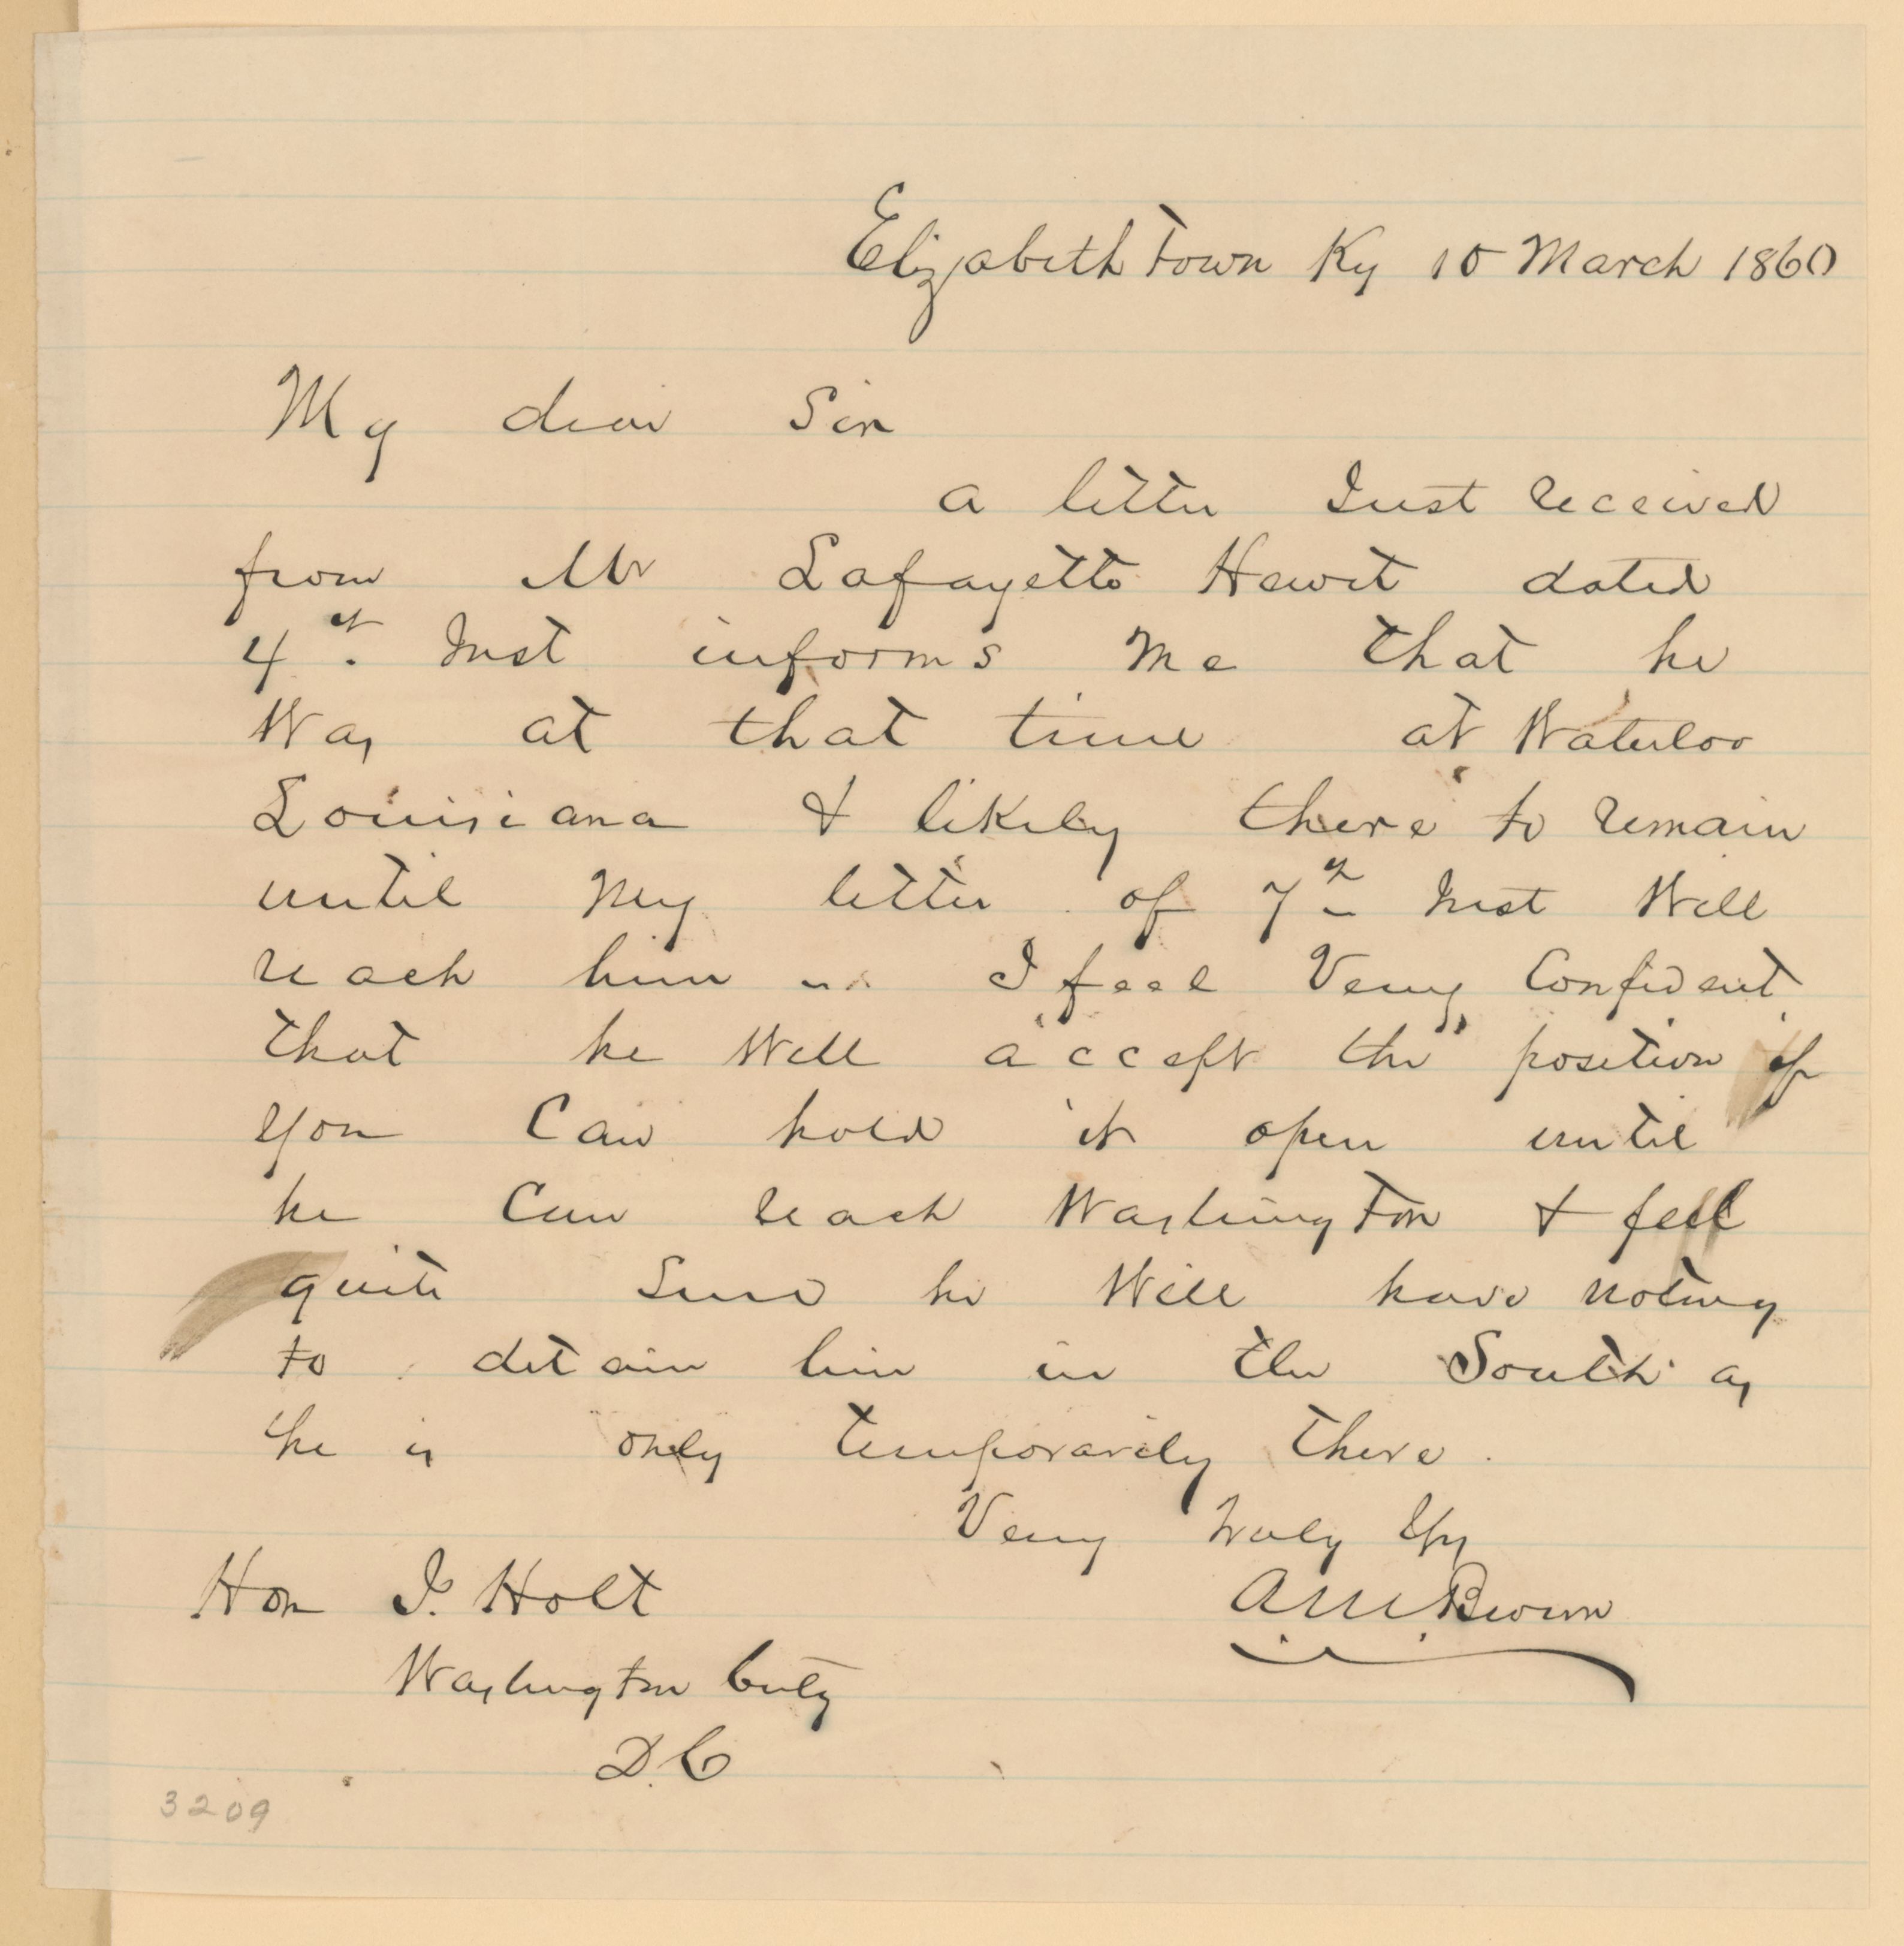 Elizabeth Town Ky 10 March 1860
My dear Sir
a letter Just received
from Mr Lafayette Hewit dated
4th. Inst informs me that he
Was at that time at Waterloo
Louisiana & likely there to remain
until my letter of 7th Inst Will
reach him I feel Very Confident
that he Will accept the position if
you Can hold it open until
he Can reach Washington & feel
quite Sure he Will have nothing
to detain him in the South as
he is only temporarily there.
Very truly Yrs
A M Brown
Hon J. Holt
Washington City
D.C
3209